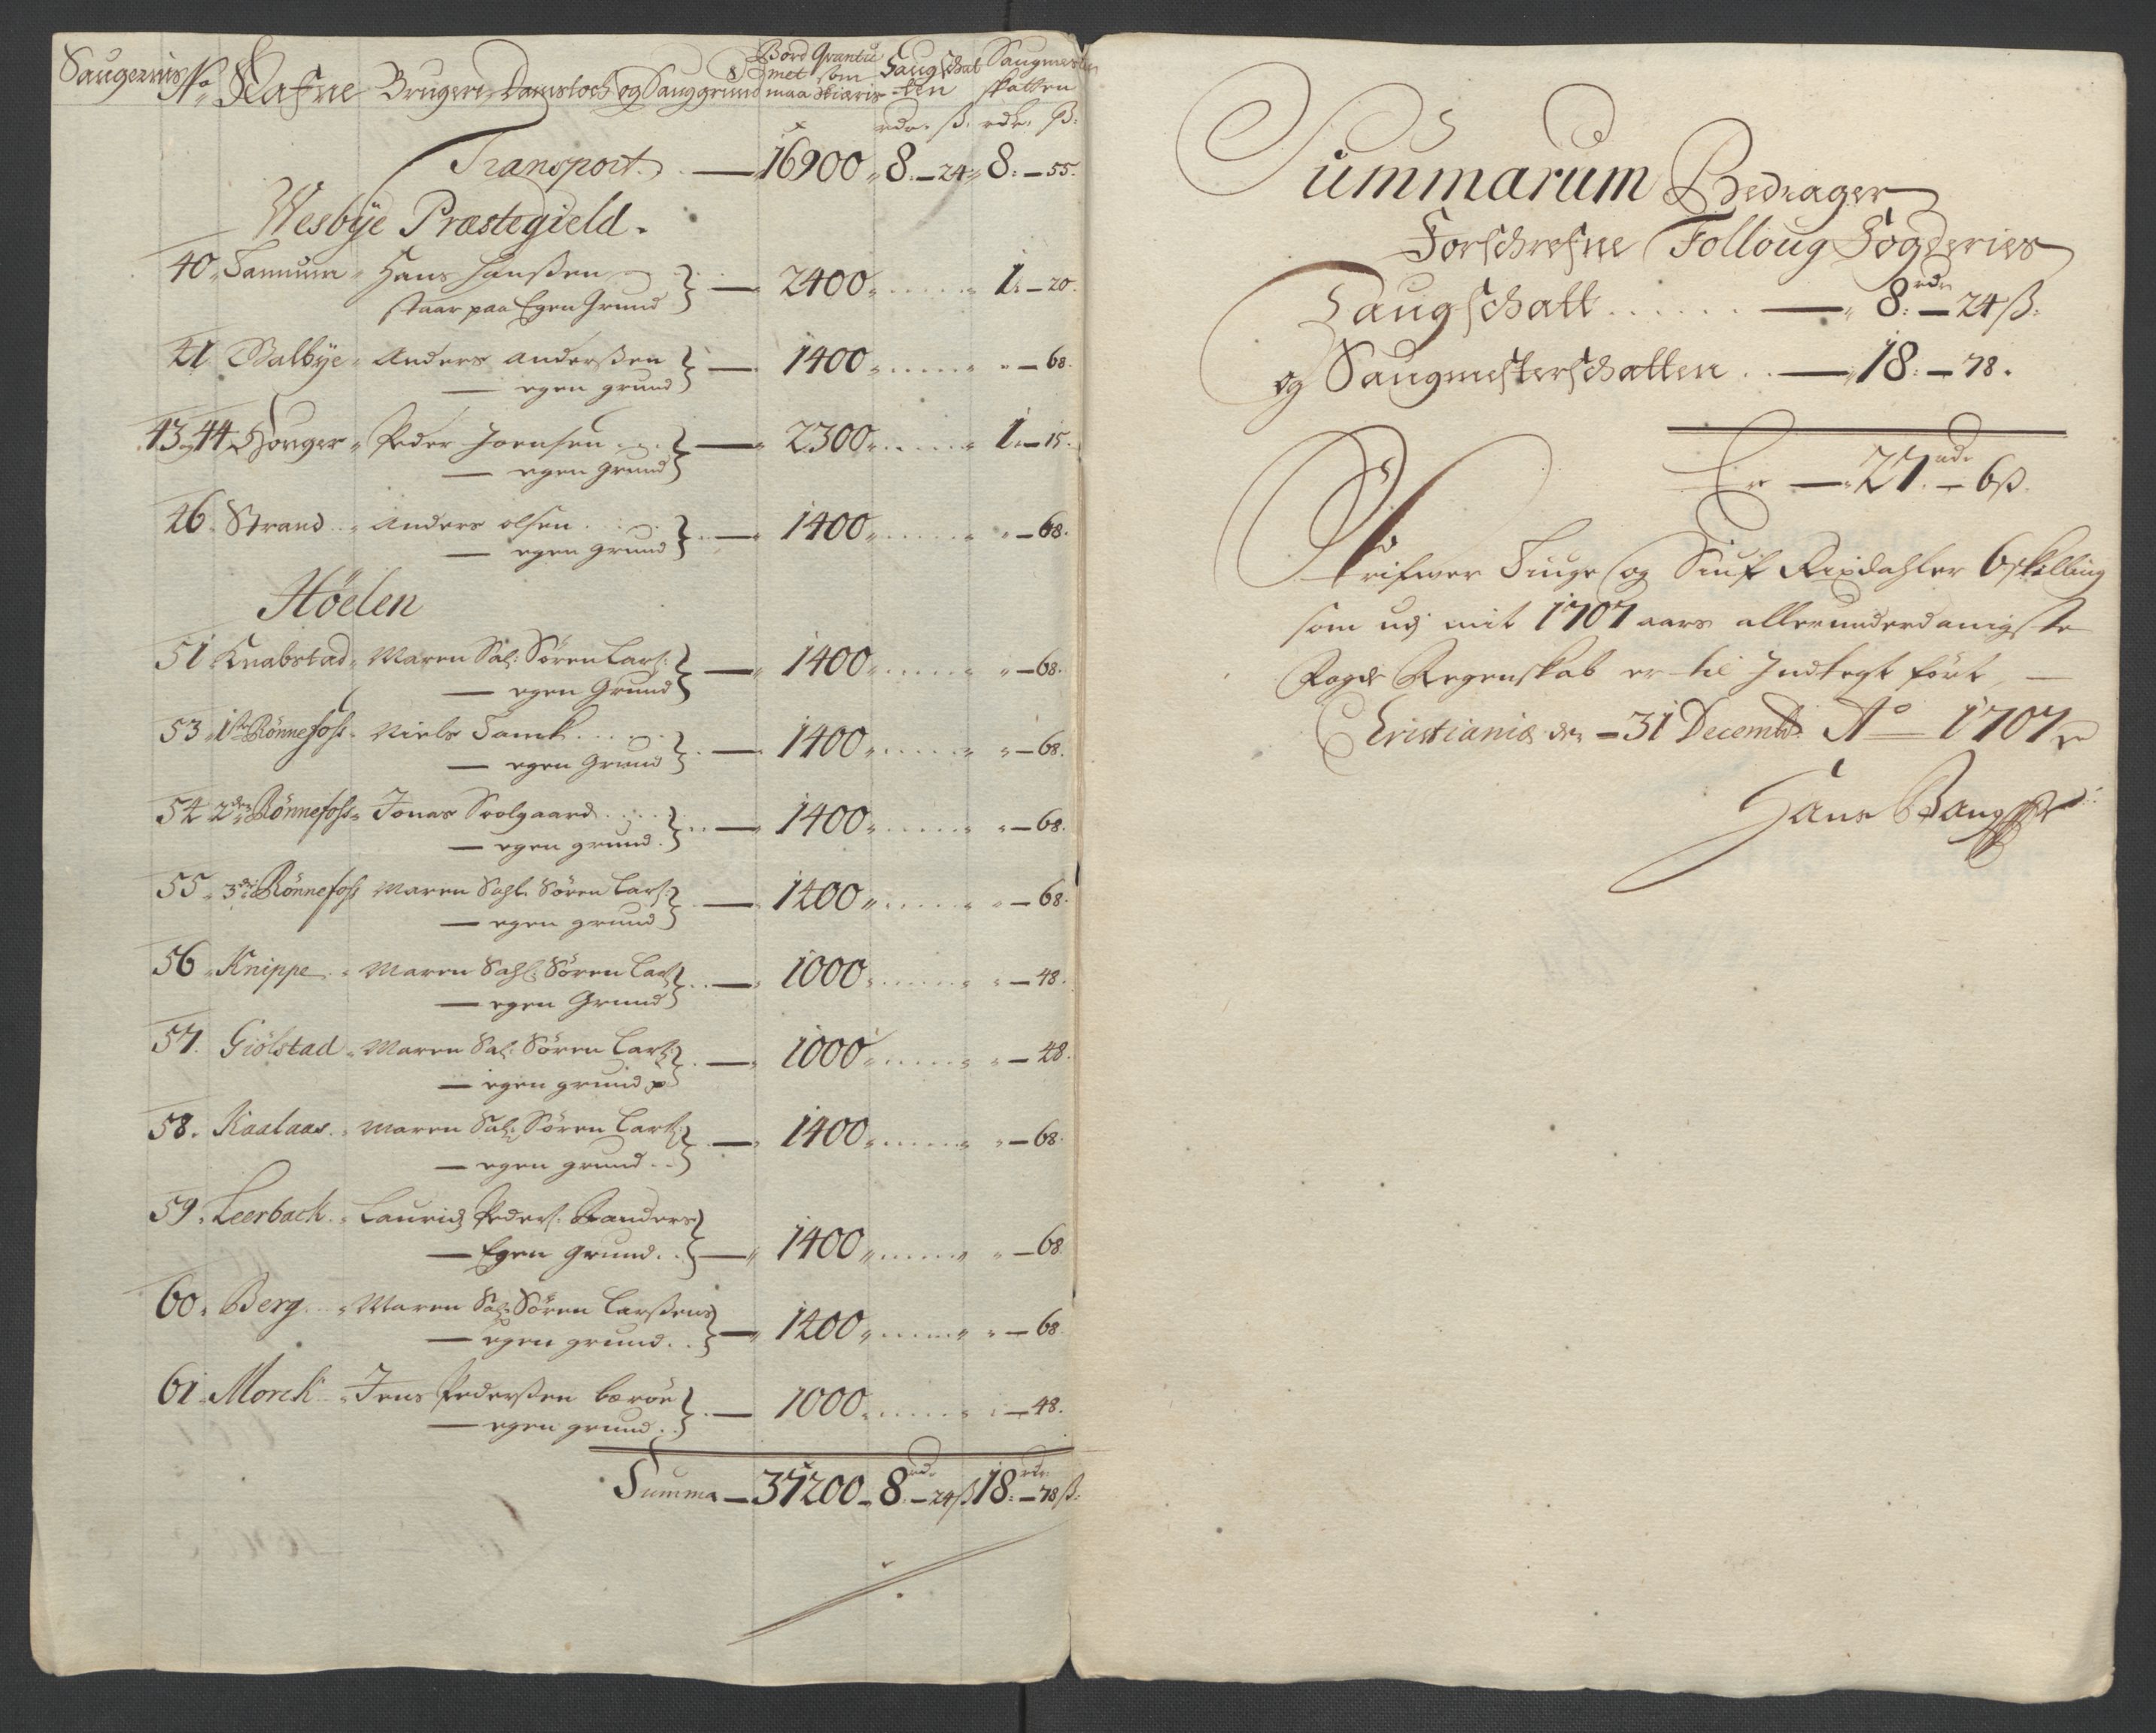 Saugernis No Nafne Brugere Damstoch og Sauggrund Bord Qvantu Saugschat Saugmester
met som ten skatten
maa skieris
rdr. ß. rdr. ß.
Transport. — 16900 8. — 24 8. — 55.
Wesbÿe Præstegield.
40. Hans Hanßen — 2400 1. — 20.
staar paa Egen Grund
41 Balbÿe Anders Anderßen — 1400 — 68.
— egen grund
43. 44 Horger Peder Joensen — 2300 1. — 15.
— egen grund
46. Strand Anders olsen — 1400 — 68.
— egen grund
Höelen
51 Knabstad Maren Sal: Sören Lars: — 1400 — 68.
— egen Grund
53 1ste Rönnefoss Niels — 1400 — 68.
— egen Grund
54 2den Rönnefoss Jonas — 1400 — 68.
— egen grund
55 3die Rönnefoss Maren Sahl. Sören Lars: — 1400 — 68.
— egen grund
56 Knippe Maren Sahl: Sören Lars: — 1000 — 48.
— egen Grund
57. Giölstad Maren Sal: Sören Lars: — 1000 — 48.
— egen grund
58. Kaalaas Maren Sal: Sören Lars: — 1400 — 68.
— egen grund
59. Leerback Laurids Peders: Randers — 1400 — 68.
— Egen Grund
60. Berg Maren Sal: Sören Larßens — 1400 — 68.
— egen grund
61 Morck Jens Pederßen bærøe — 1000 — 48.
— egen grund
Summa — 37200 — 8 rdr. — 24 ß 18 rdr. — 78 ß.
Summarum Bedrager
Forschrefne Folloug Fogderies
Saugschatt — 8 rdr. — 24 ß.
og Saugmesterschatten — 18. — 78.
Er — 27 rdr. — 6 ß.
Skrifwer Tiuge og Siuf Rixdahler 6 skelling
som udj mit 1707 aars allerunderdanigste
Fogde Regenskab er til Indtegt fört —
Christiania den — 31 Decembr. Ao 1707
Hans